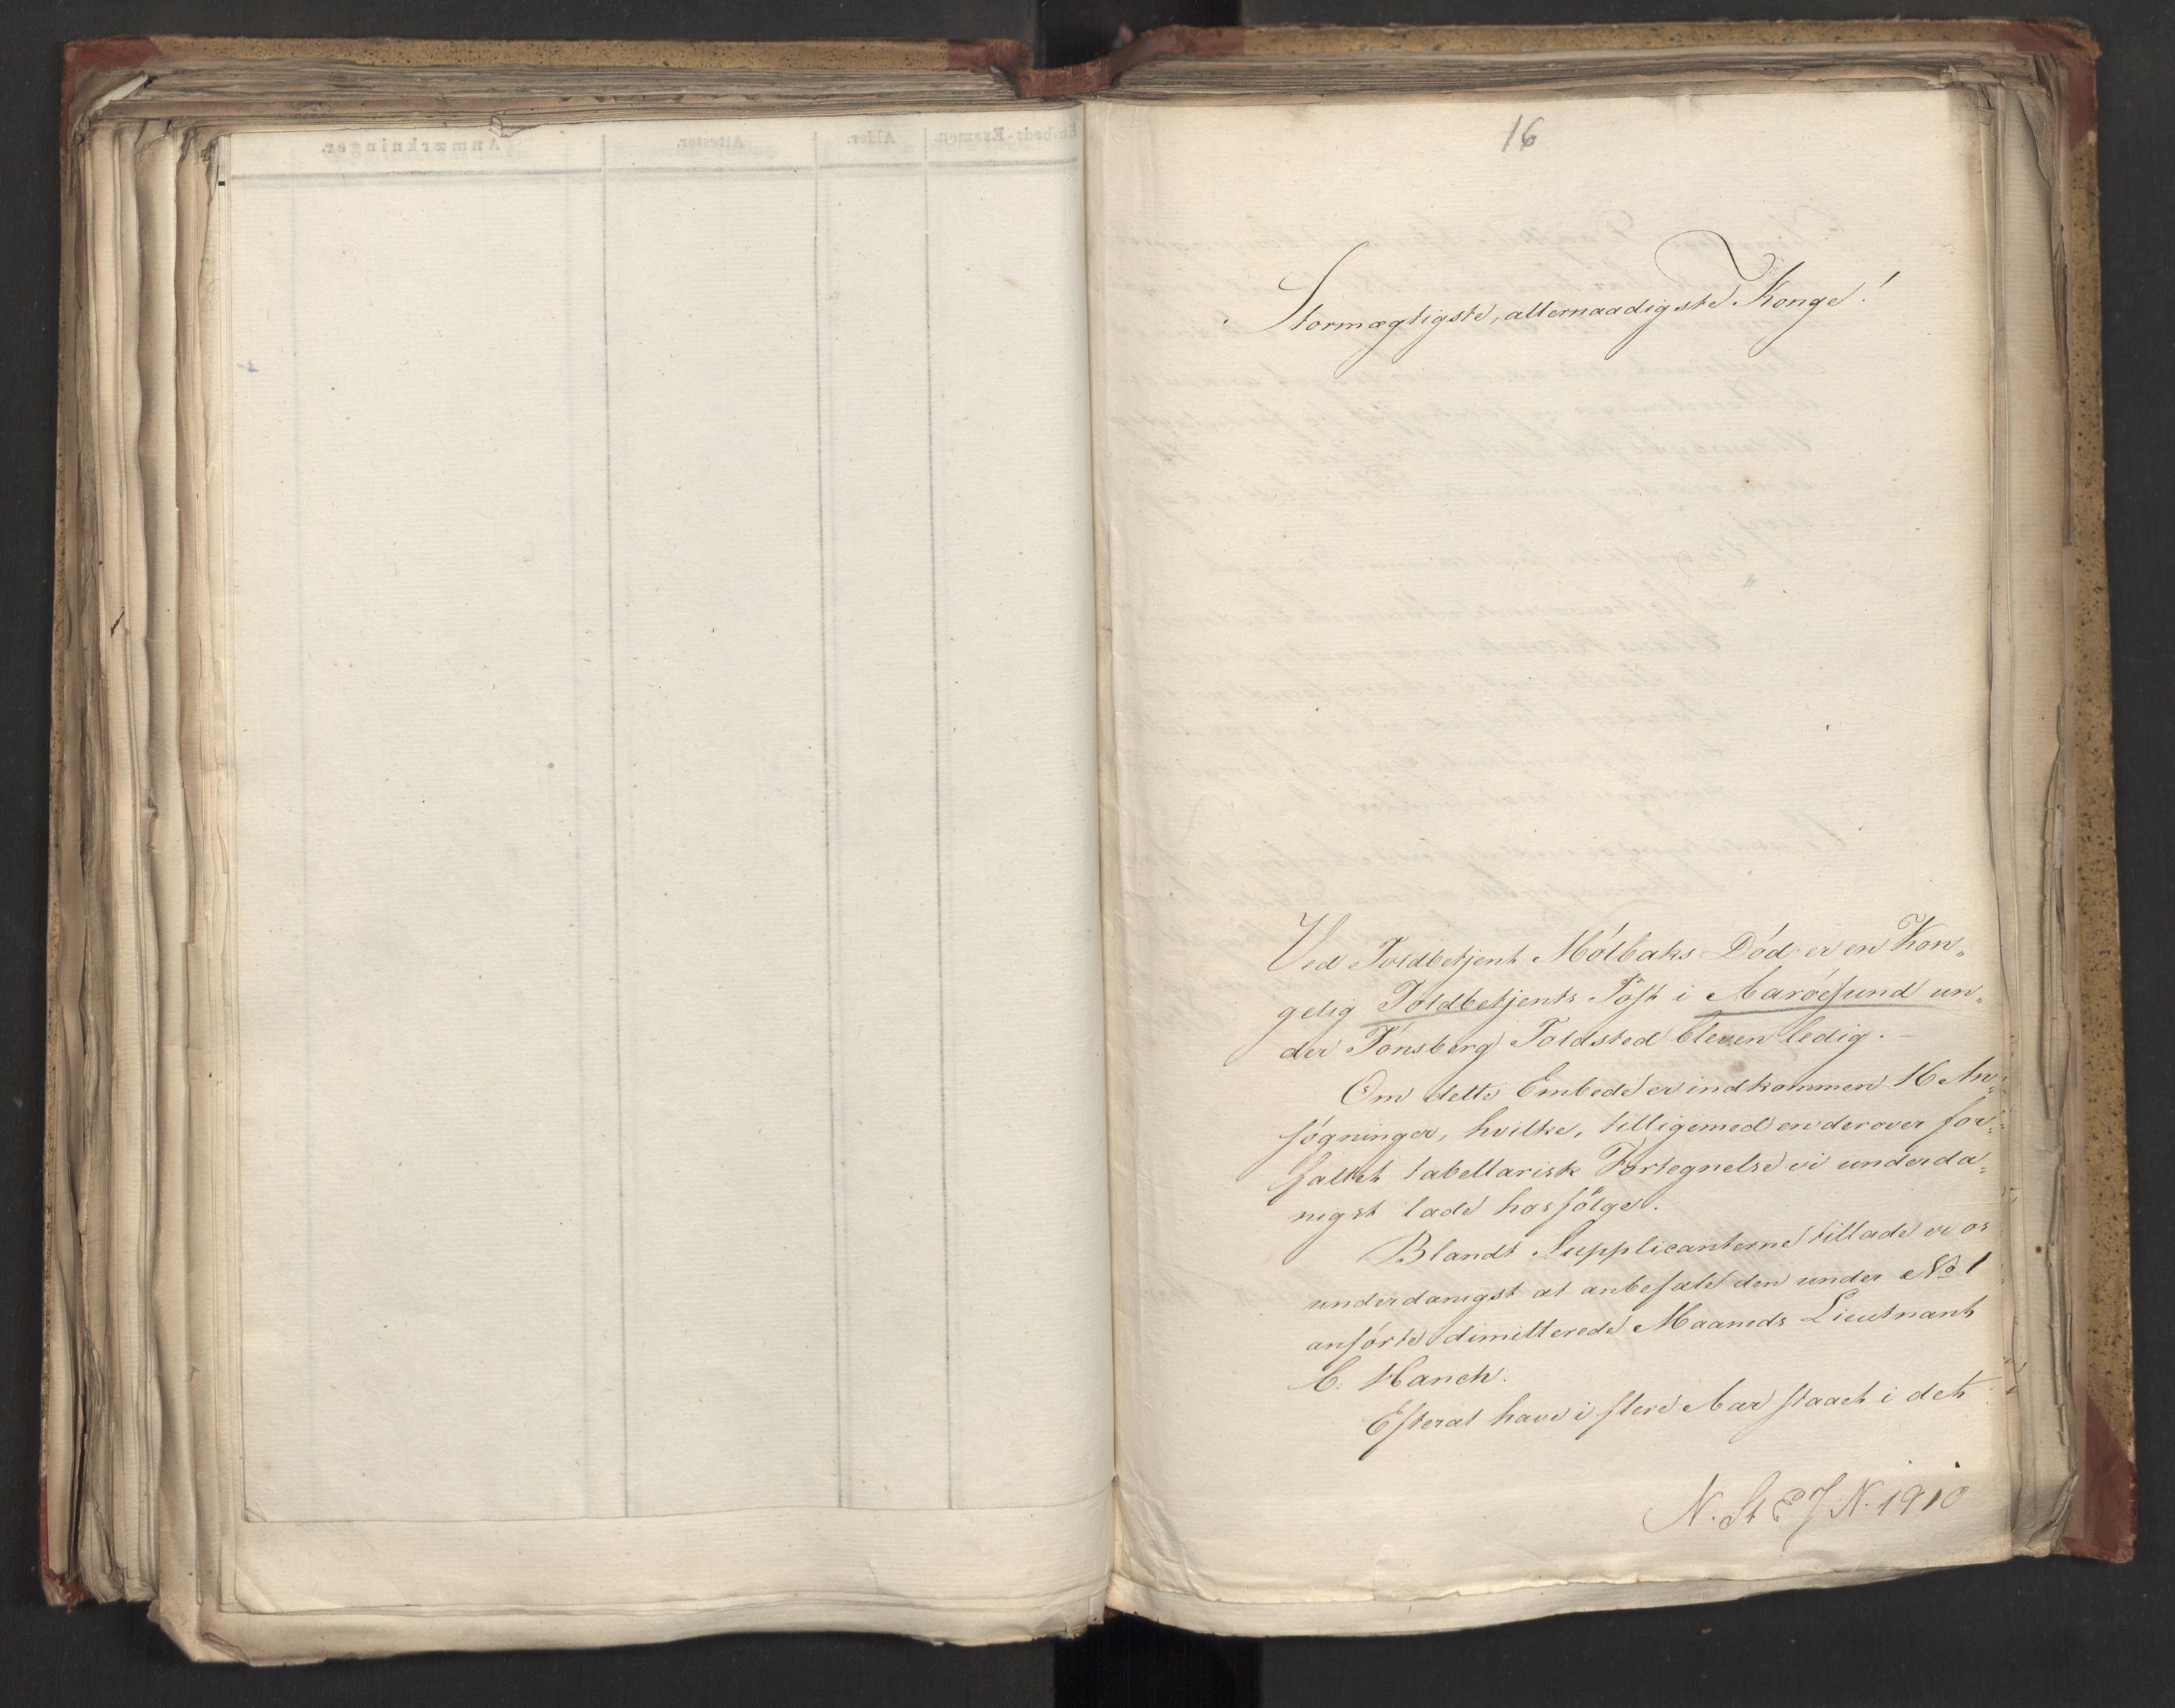 16
Stormægtigste, allernaadigste Konge!
Ved Toldbetjent Mølbaks Död er en Kon„
gelig Toldbetjents Post i Aaröesund un„
der Tönsberg Toldsted bleven ledig. —
Om dette Embede er indkommen 16 An„
søgninger, hvilke, tilligemed en derover for„
fattet tabellarisk Fortegnelse vi underda„
nigst lade hosfølge.
Blandt Supplicanterne tillade vi os
underdanigst at anbefale den under No 1
anförte dimitterede Maaneds Lieutnant
C. Hanch.
Efterat have i flere Aar staaet i det
N. St E J N. 1910
Anmærkninger.
Attester.
Alder.
Embeds-Examen.